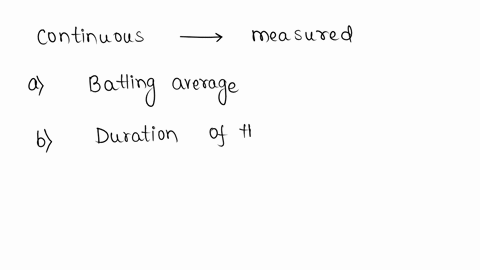 Continuous → measured
a) Batting average
b) Duration of t